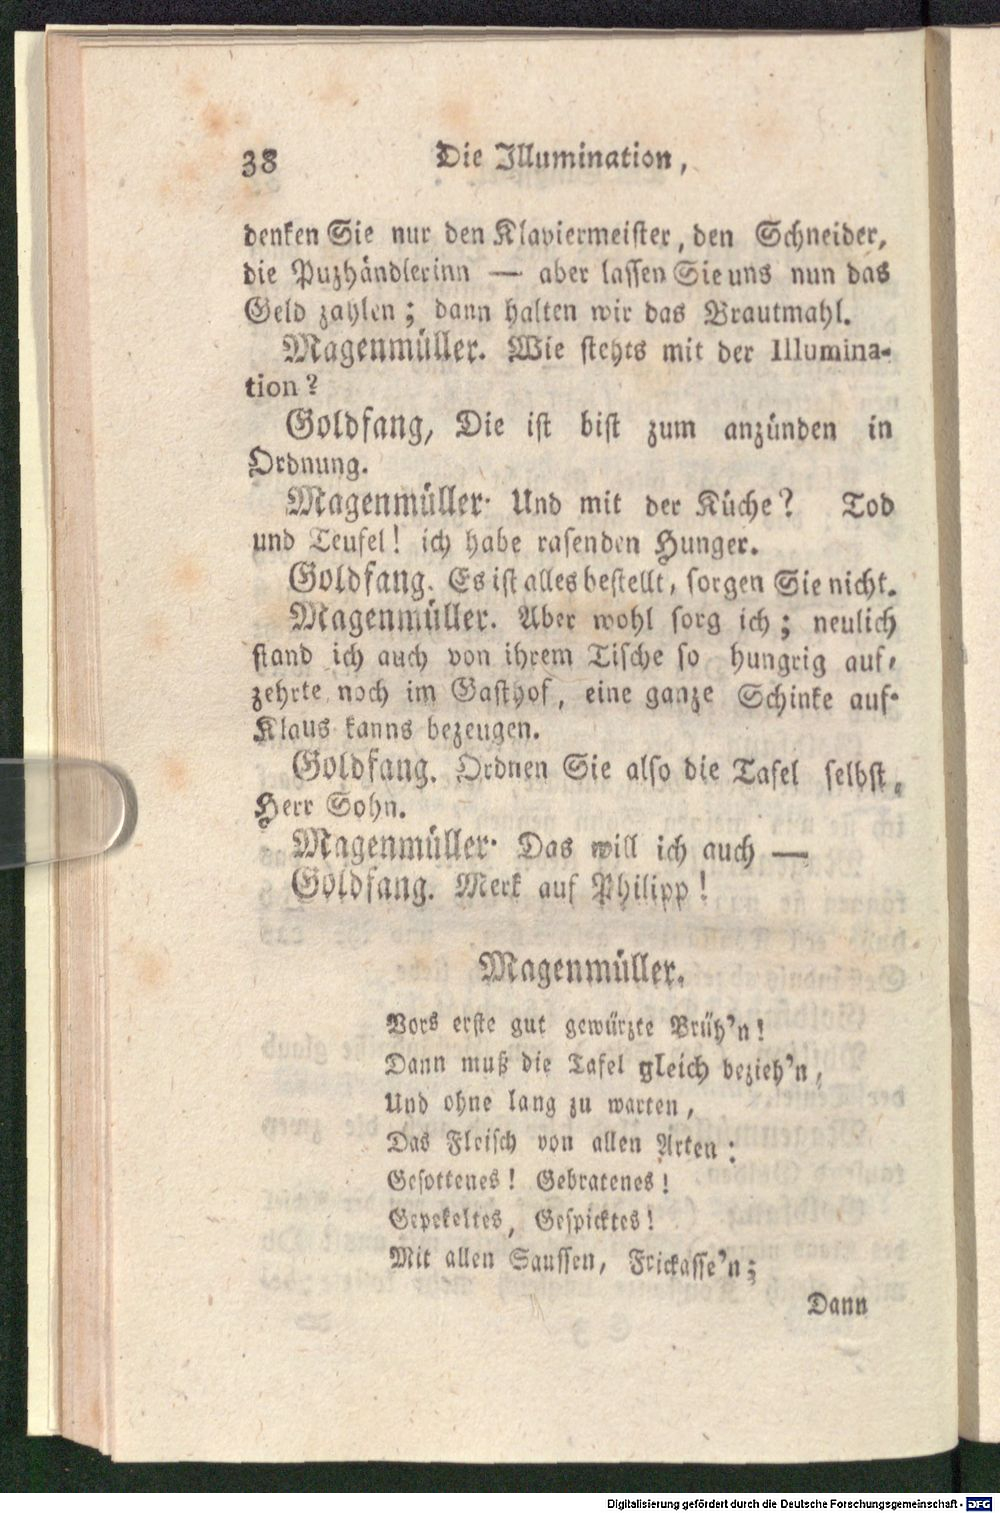 38 Die Illumination,
denken Sie nur den Klaviermeister, den Schneider,
die Puzhändlerinn — aber lassen Sie uns nun das
Geld zahlen; dann halten wir das Brautmahl.
Magenmüller. Wie stehts mit der Illumina-
tion?
Goldfang, Die ist bist zum anzünden in
Ordnung.
Magenmüller. Und mit der Küche? Tod
und Teufel! ich habe rasenden Hunger.
Goldfang. Es ist alles bestellt, sorgen Sie nicht.
Magenmüller. Aber wohl sorg ich; neulich
stand ich auch von ihrem Tische so hungrig auf,
zehrte noch im Gasthof, eine ganze Schinke auf-
Klaus kanns bezeugen.
Goldfang. Ordnen Sie also die Tafel selbst,
Herr Sohn.
Magenmüller. Das will ich auch —
Goldfang. Merk auf Philipp!
Magenmüller.
Vors erste gut gewürzte Brüh'n!
Dann muß die Tafel gleich bezieh'n,
Und ohne lang zu warten,
Das Fleisch von allen Arten:
Gesottenes! Gebratenes!
Gepekeltes, Gespicktes!
Mit allen Saussen, Frickasse'n;
Dann
Digitalisierung gefördert durch die Deutsche Forschungsgemeinschaft - DFG